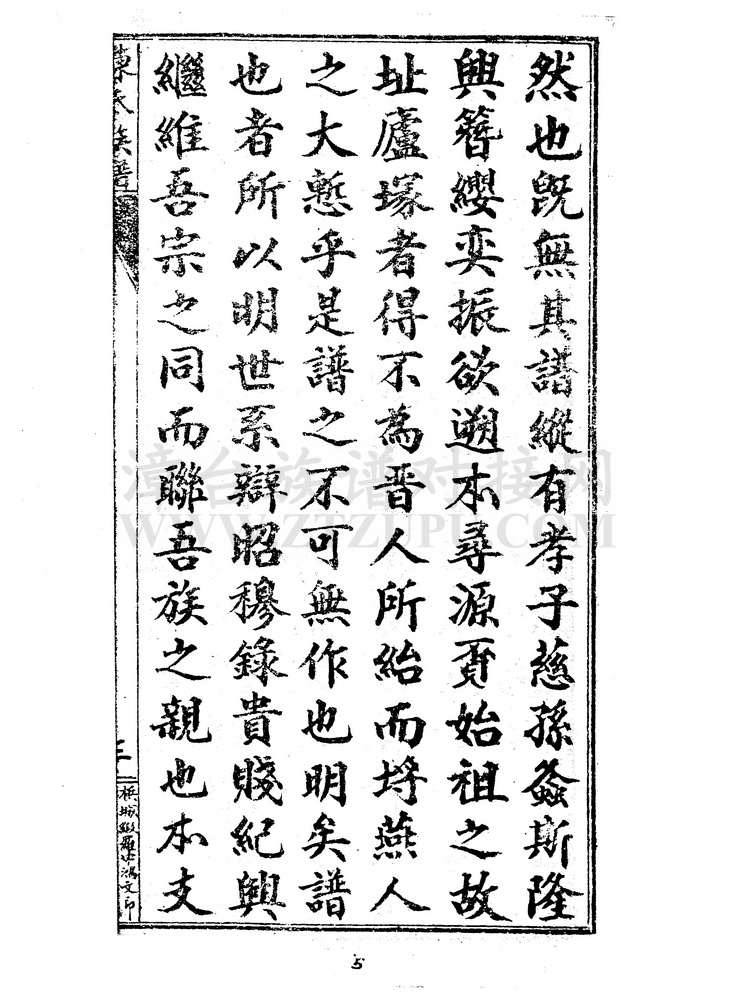 然也旣無其譜縱有孝子慈孫螽斯隆
興簪纓奕振欲遡本尋源覔始祖之故
址廬塚者得不為晋人所紿而埒燕人
之大慙乎是譜之不可無作也明矣譜
也者所以明世系辯昭穆錄貴賤紀興
繼維吾宗之同而聯吾族之親也本支
陳氏族譜
三
檳城
羅中鴻文印
5
漳台族谱对接网
WWW.ZTZUPU.COM